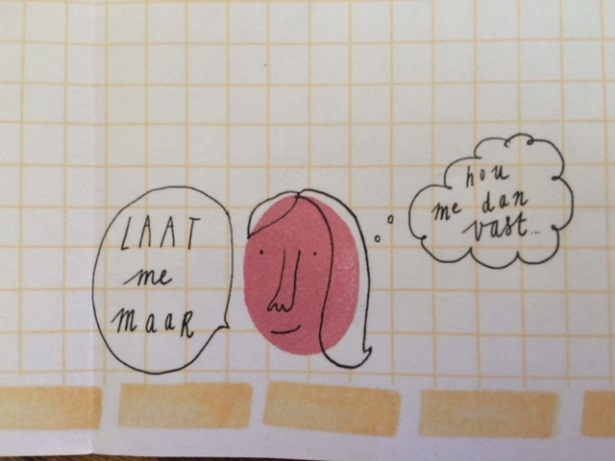 LAAT
me
maaR
hou
me dan
vast...